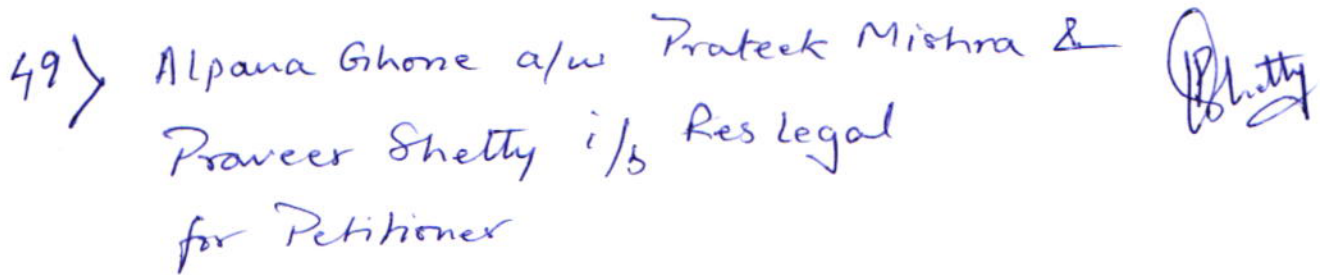 49) Alpana Ghone a/w Prateek Mishra &
Praveer Shetty i/b Res Legal
for Petitioner
PShetty